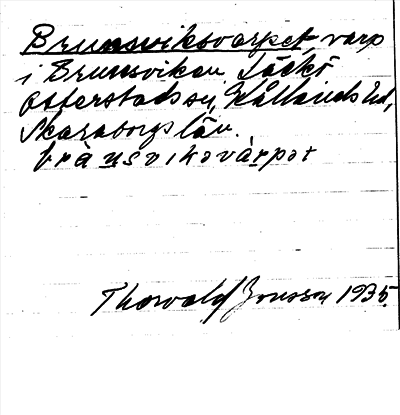 Brunsviksvarpet varp
i Brunsviken. Läckö
Otterstads sn, Kållands hd,
Skaraborgs län.
brùnsvıksvárpət
Thorvald Jonsson 1935.